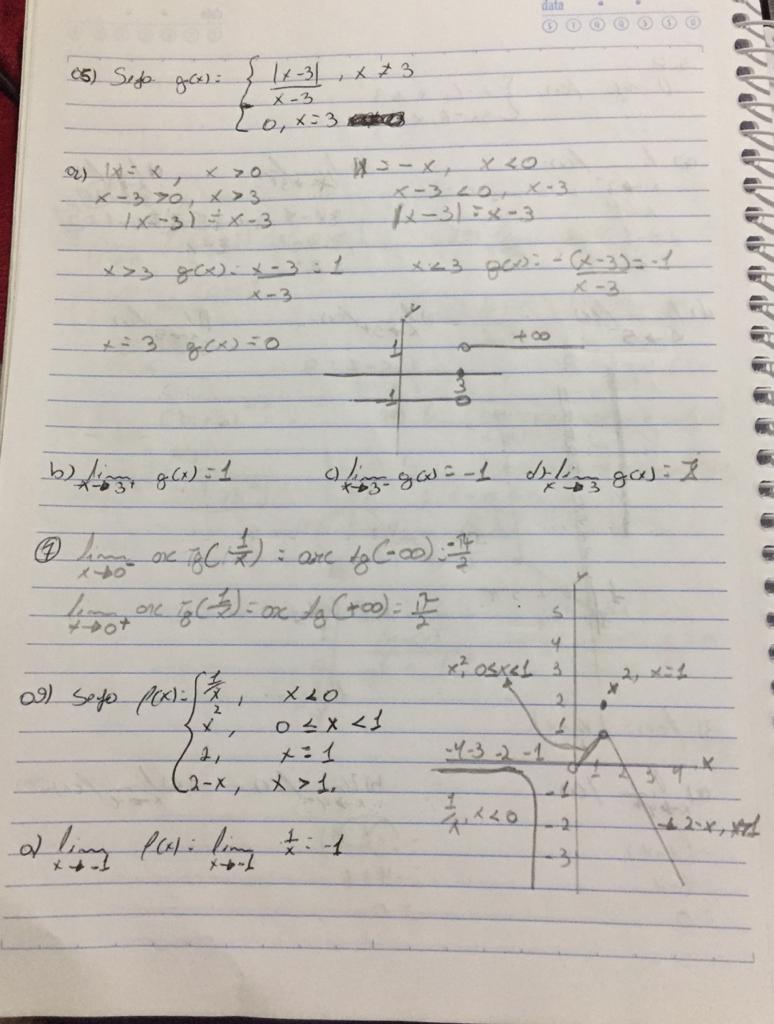 data
S T Q Q S S D
05) Seja g(x) = { |x-3| / x-3 , x ≠ 3
0, x = 3
a) |x = x, x > 0    |x = -x, x < 0
x-3 > 0, x > 3    x-3 < 0, x-3
|x-3) = x-3    |x-3| = x-3
x > 3 g(x) = x-3 / x-3 = 1    x < 3 g(x) = -(x-3) / x-3 = -1
x = 3 g(x) = 0
y
1 +∞
3
-1
b) lim x→3+ g(x) = 1    c) lim x→3- g(x) = -1    d) lim x→3 g(x) = ∄
lim x→0- arc tg(1/x) = arc tg(-∞) = -π/2
lim x→0+ arc tg(1/x) = arc tg(+∞) = π/2
09) Seja f(x) = { 1/x, x < 0
x², 0 ≤ x < 1
2, x = 1
2-x, x > 1.
y
5
4
x², 0≤x<1 3 2, x=1
2
1
-4 -3 -2 -1 1 2 3 4 x
-1
1/x, x<0 -2 2-x, x>1
-3
a) lim x→-1 f(x) = lim x→-1 1/x = -1